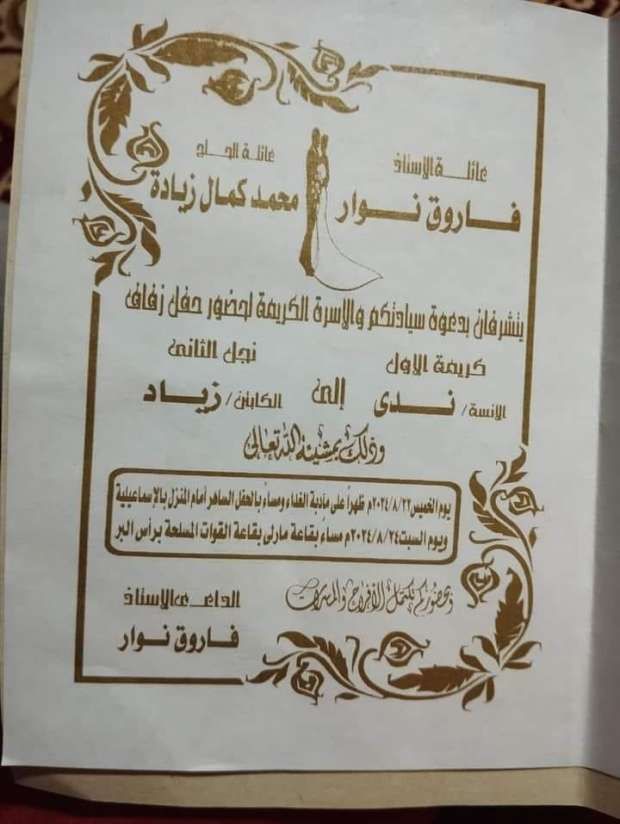 عائلة الاستاذ
فاروق نوار
عائلة الحاج
محمد كمال زيادة
يتشرفان بدعوة سيادتكم والاسرة الكريمة لحضور حفل زفاف
كريمة الاول
نجل الثانى
الانسة/ ندى إلى الكابتن/ زياد
وذلك بمشيئة الله تعالى
يوم الخميس ٢٠٢٤/٨/٢٢م ظهراً على مأدبة الغداء ومساءً بالحفل الساهر أمام المنزل بالإسماعيلية
ويوم السبت ٢٠٢٤/٨/٢٤م مساءً بقاعة مارلى بقاعة القوات المسلحة برأس البر
وبحضوركم تكتمل الأفراح والمسرات
الداعى الاستاذ
فاروق نوار